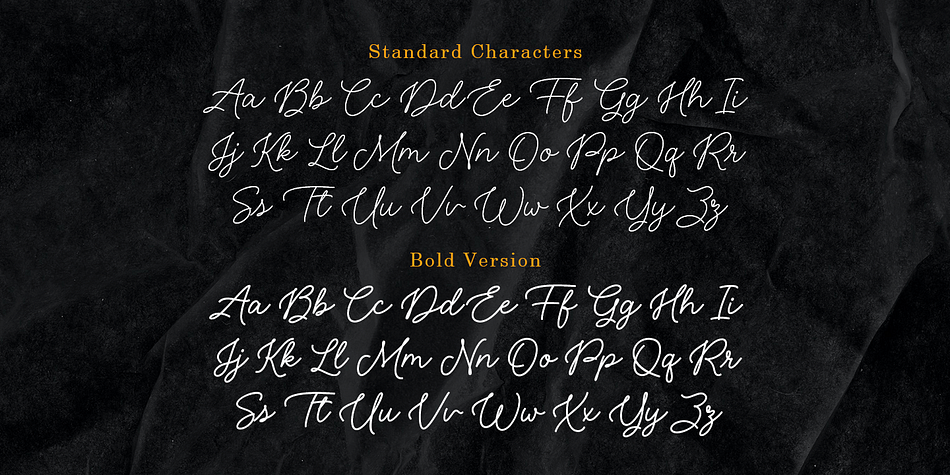 Standard Characters
Aa Bb Cc Dd Ee Ff Gg Hh Ii
Jj Kk Ll Mm Nn Oo Pp Qq Rr
Ss Tt Uu Vv Ww Xx Yy Zz
Bold Version
Aa Bb Cc Dd Ee Ff Gg Hh Ii
Jj Kk Ll Mm Nn Oo Pp Qq Rr
Ss Tt Uu Vv Ww Xx Yy Zz